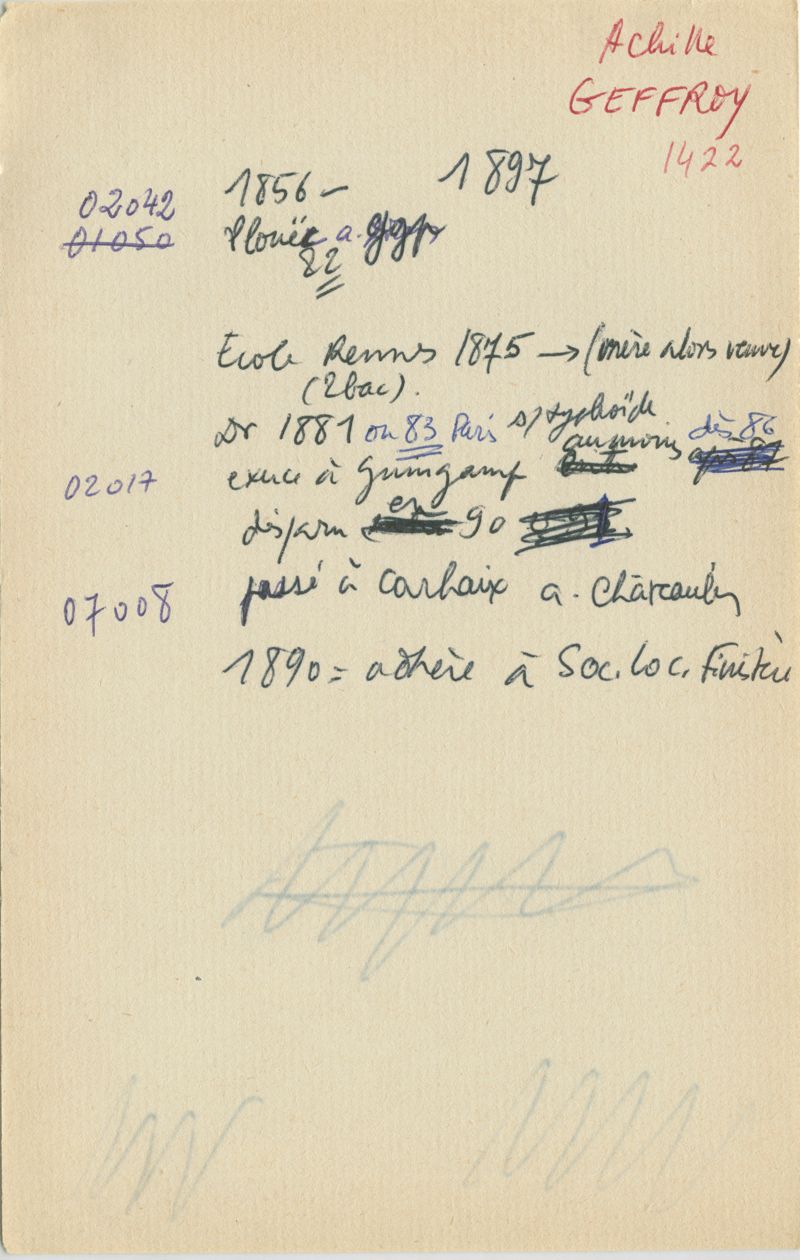 Achille
GEFFROY
1422
1856 – 1897
02042
01050
Plouëc a. Ggp
22
Ecole Rennes 1875 → (mère alors veuve)
(2bac).
Dr 1881 ou 83 Paris s/typhoïde
exerce à Guingamp au moins dès 86
02017
disparu en 90
passé à Carhaix a. Châteaulin
07008
1890 = adhère à Soc. loc. Finistère